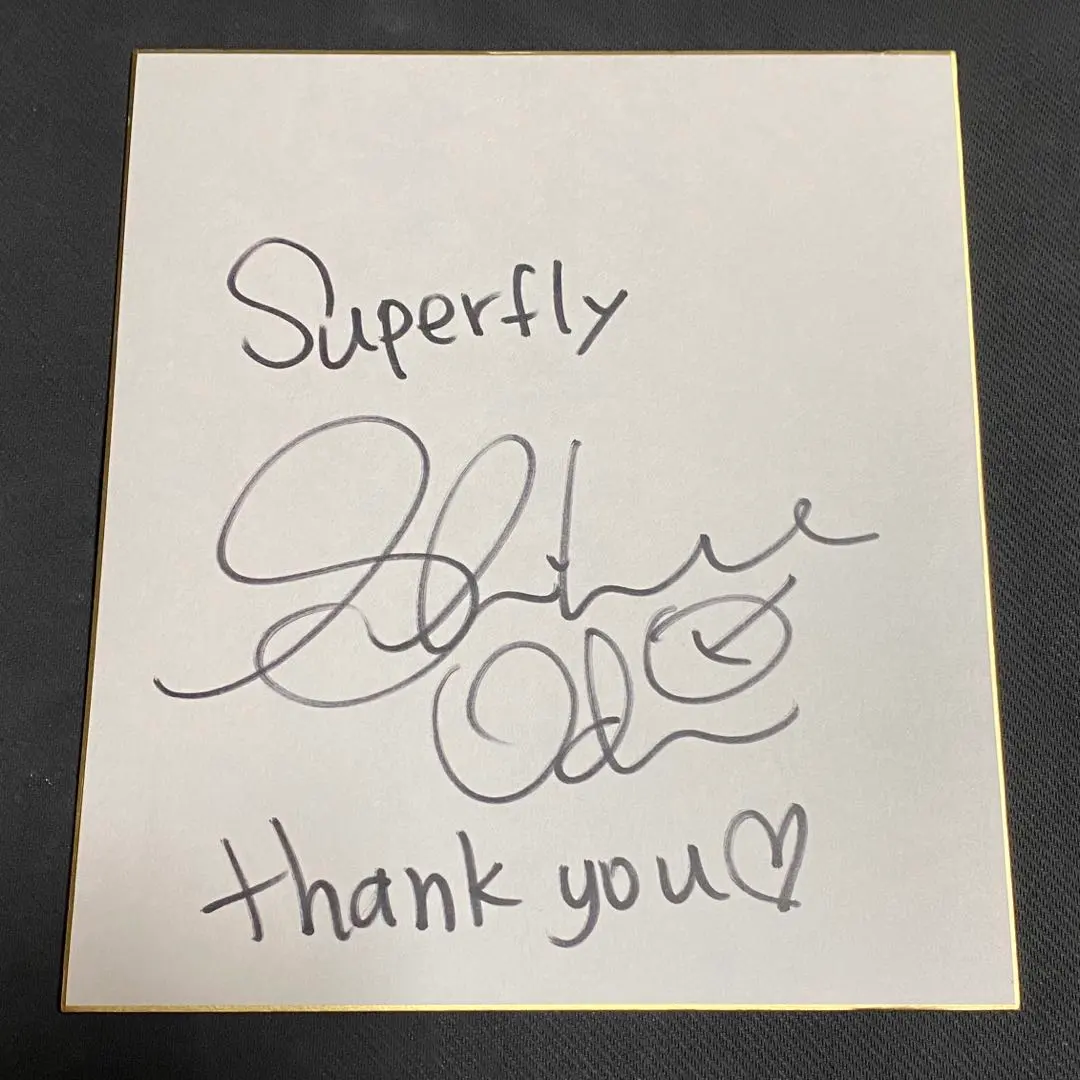 Superfly
Shiho
Ochi
thank you♡